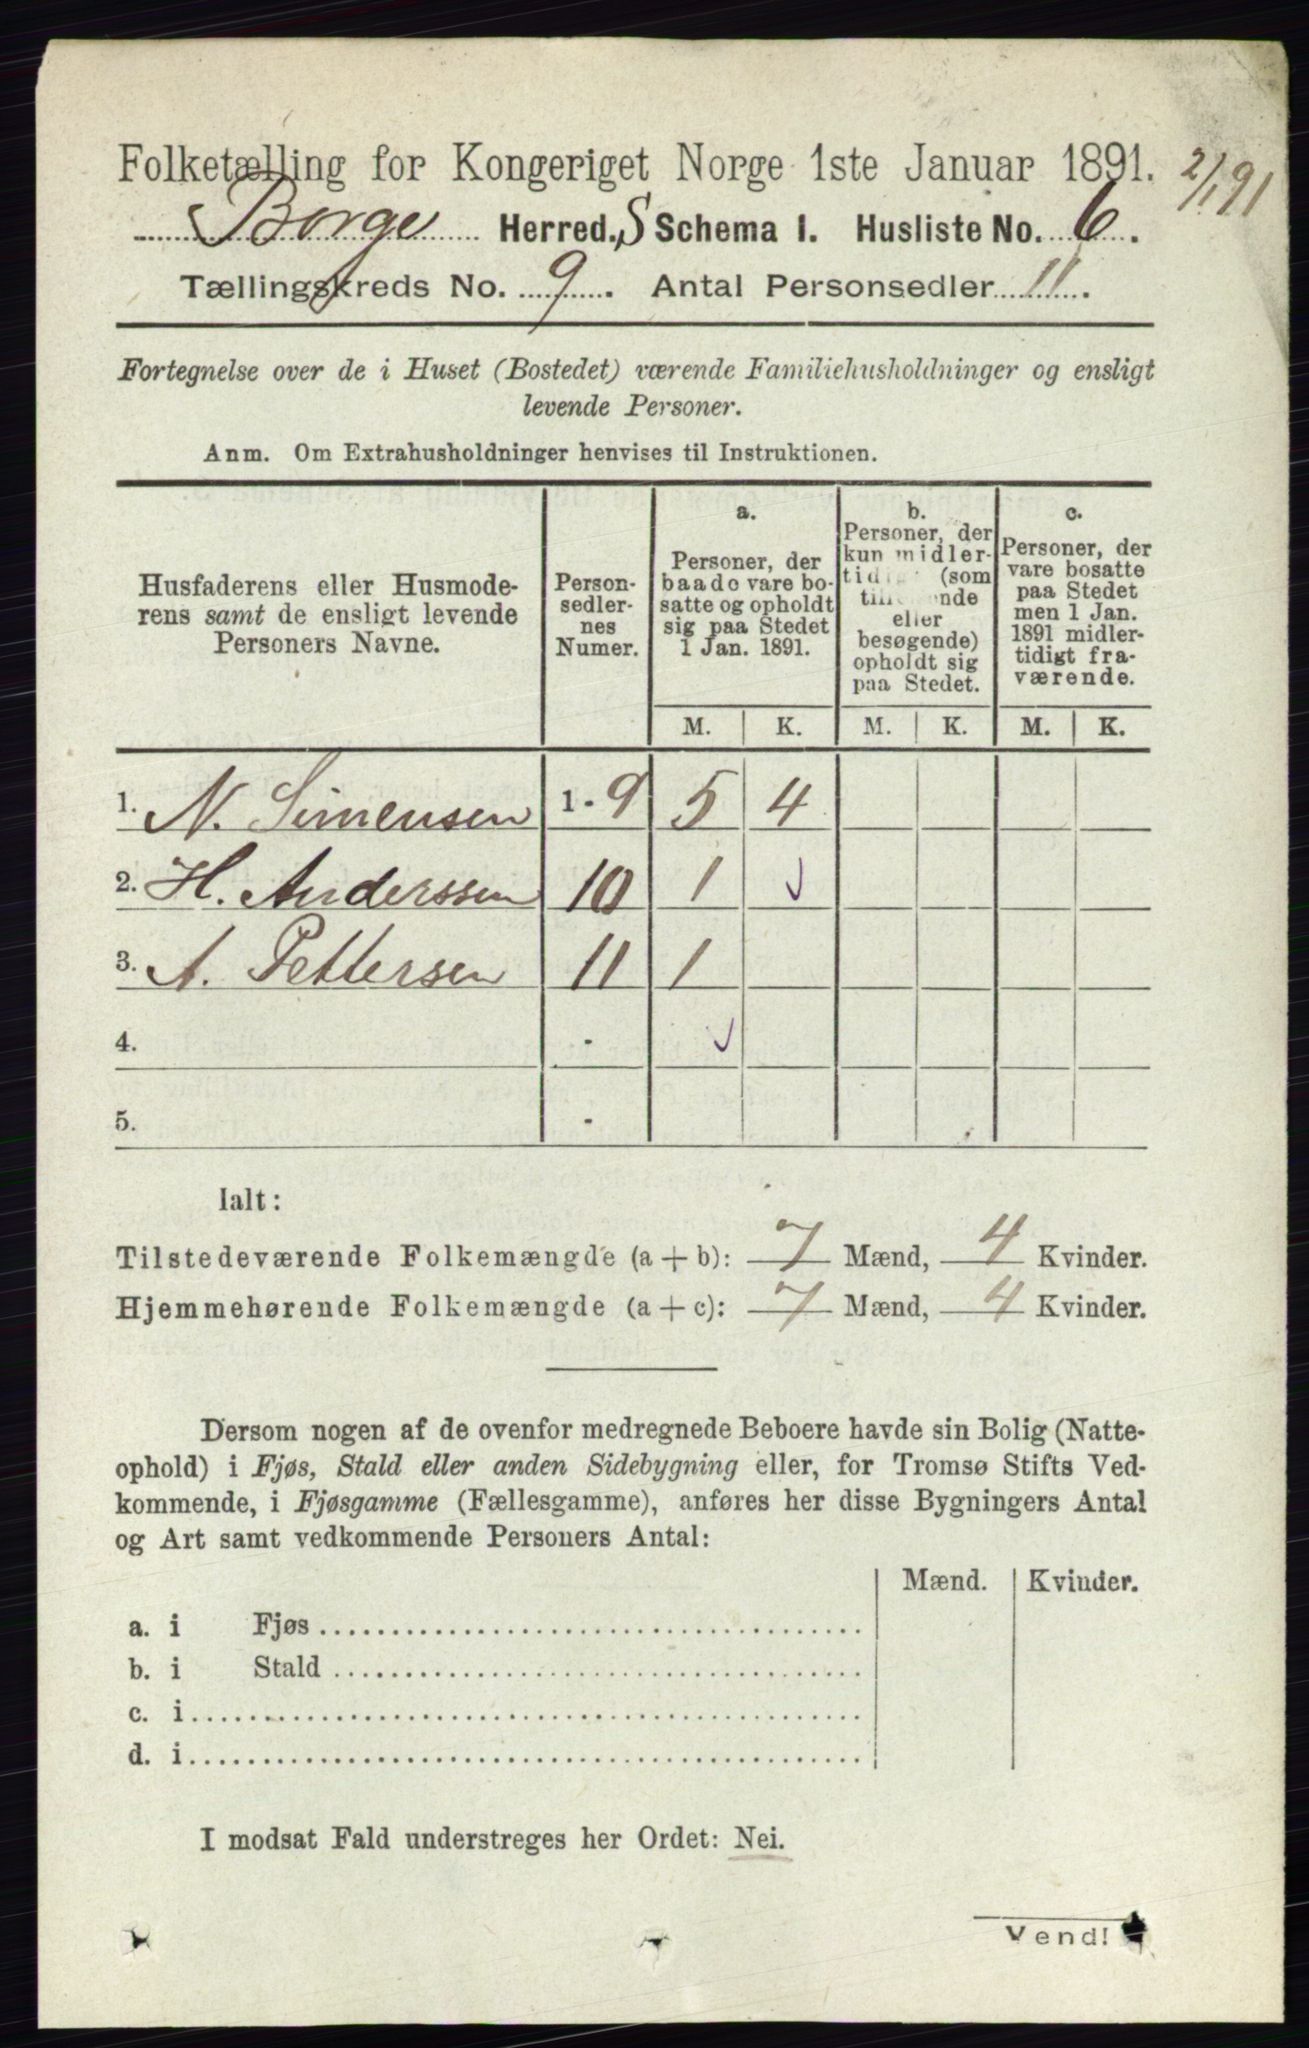 Folketælling for Kongeriget Norge 1ste Januar 1891. 2/1 91
Borge Herred. S Schema I. Husliste No. 6.
Tællingskreds No. 9. Antal Personsedler 11.
Fortegnelse over de i Huset (Bostedet) værende Familiehusholdninger og ensligt
levende Personer.
Anm. Om Extrahusholdninger henvises til Instruktionen.
Husfaderens eller Husmode-
rens samt de ensligt levende
Personers Navne.
Person-
sedler-
nes
Numer.
a.
Personer, der
baade vare bo-
satte og opholdt
sig paa Stedet
1 Jan. 1891.
b.
Personer, der
kun midler-
tidigt (som
tilreisende
eller
besøgende)
opholdt sig
paa Stedet.
c.
Personer, der
vare bosatte
paa Stedet
men 1 Jan.
1891 midler-
tidigt fra-
værende.
M. K. M. K. M. K.
1. N. Simensen 1-9 5 4
2. H. Anderssen 10 1
3. A. Pettersen 11 1
4. -
5. -
Ialt:
Tilstedeværende Folkemængde (a + b): 7 Mænd, 4 Kvinder.
Hjemmehørende Folkemængde (a + c): 7 Mænd, 4 Kvinder.
Dersom nogen af de ovenfor medregnede Beboere havde sin Bolig (Natte-
ophold) i Fjøs, Stald eller anden Sidebygning eller, for Tromsø Stifts Ved-
kommende, i Fjøsgamme (Fællesgamme), anføres her disse Bygningers Antal
og Art samt vedkommende Personers Antal:
Mænd. Kvinder.
a. i Fjøs
b. i Stald
c. i
d. i
I modsat Fald understreges her Ordet: Nei.
Vend!